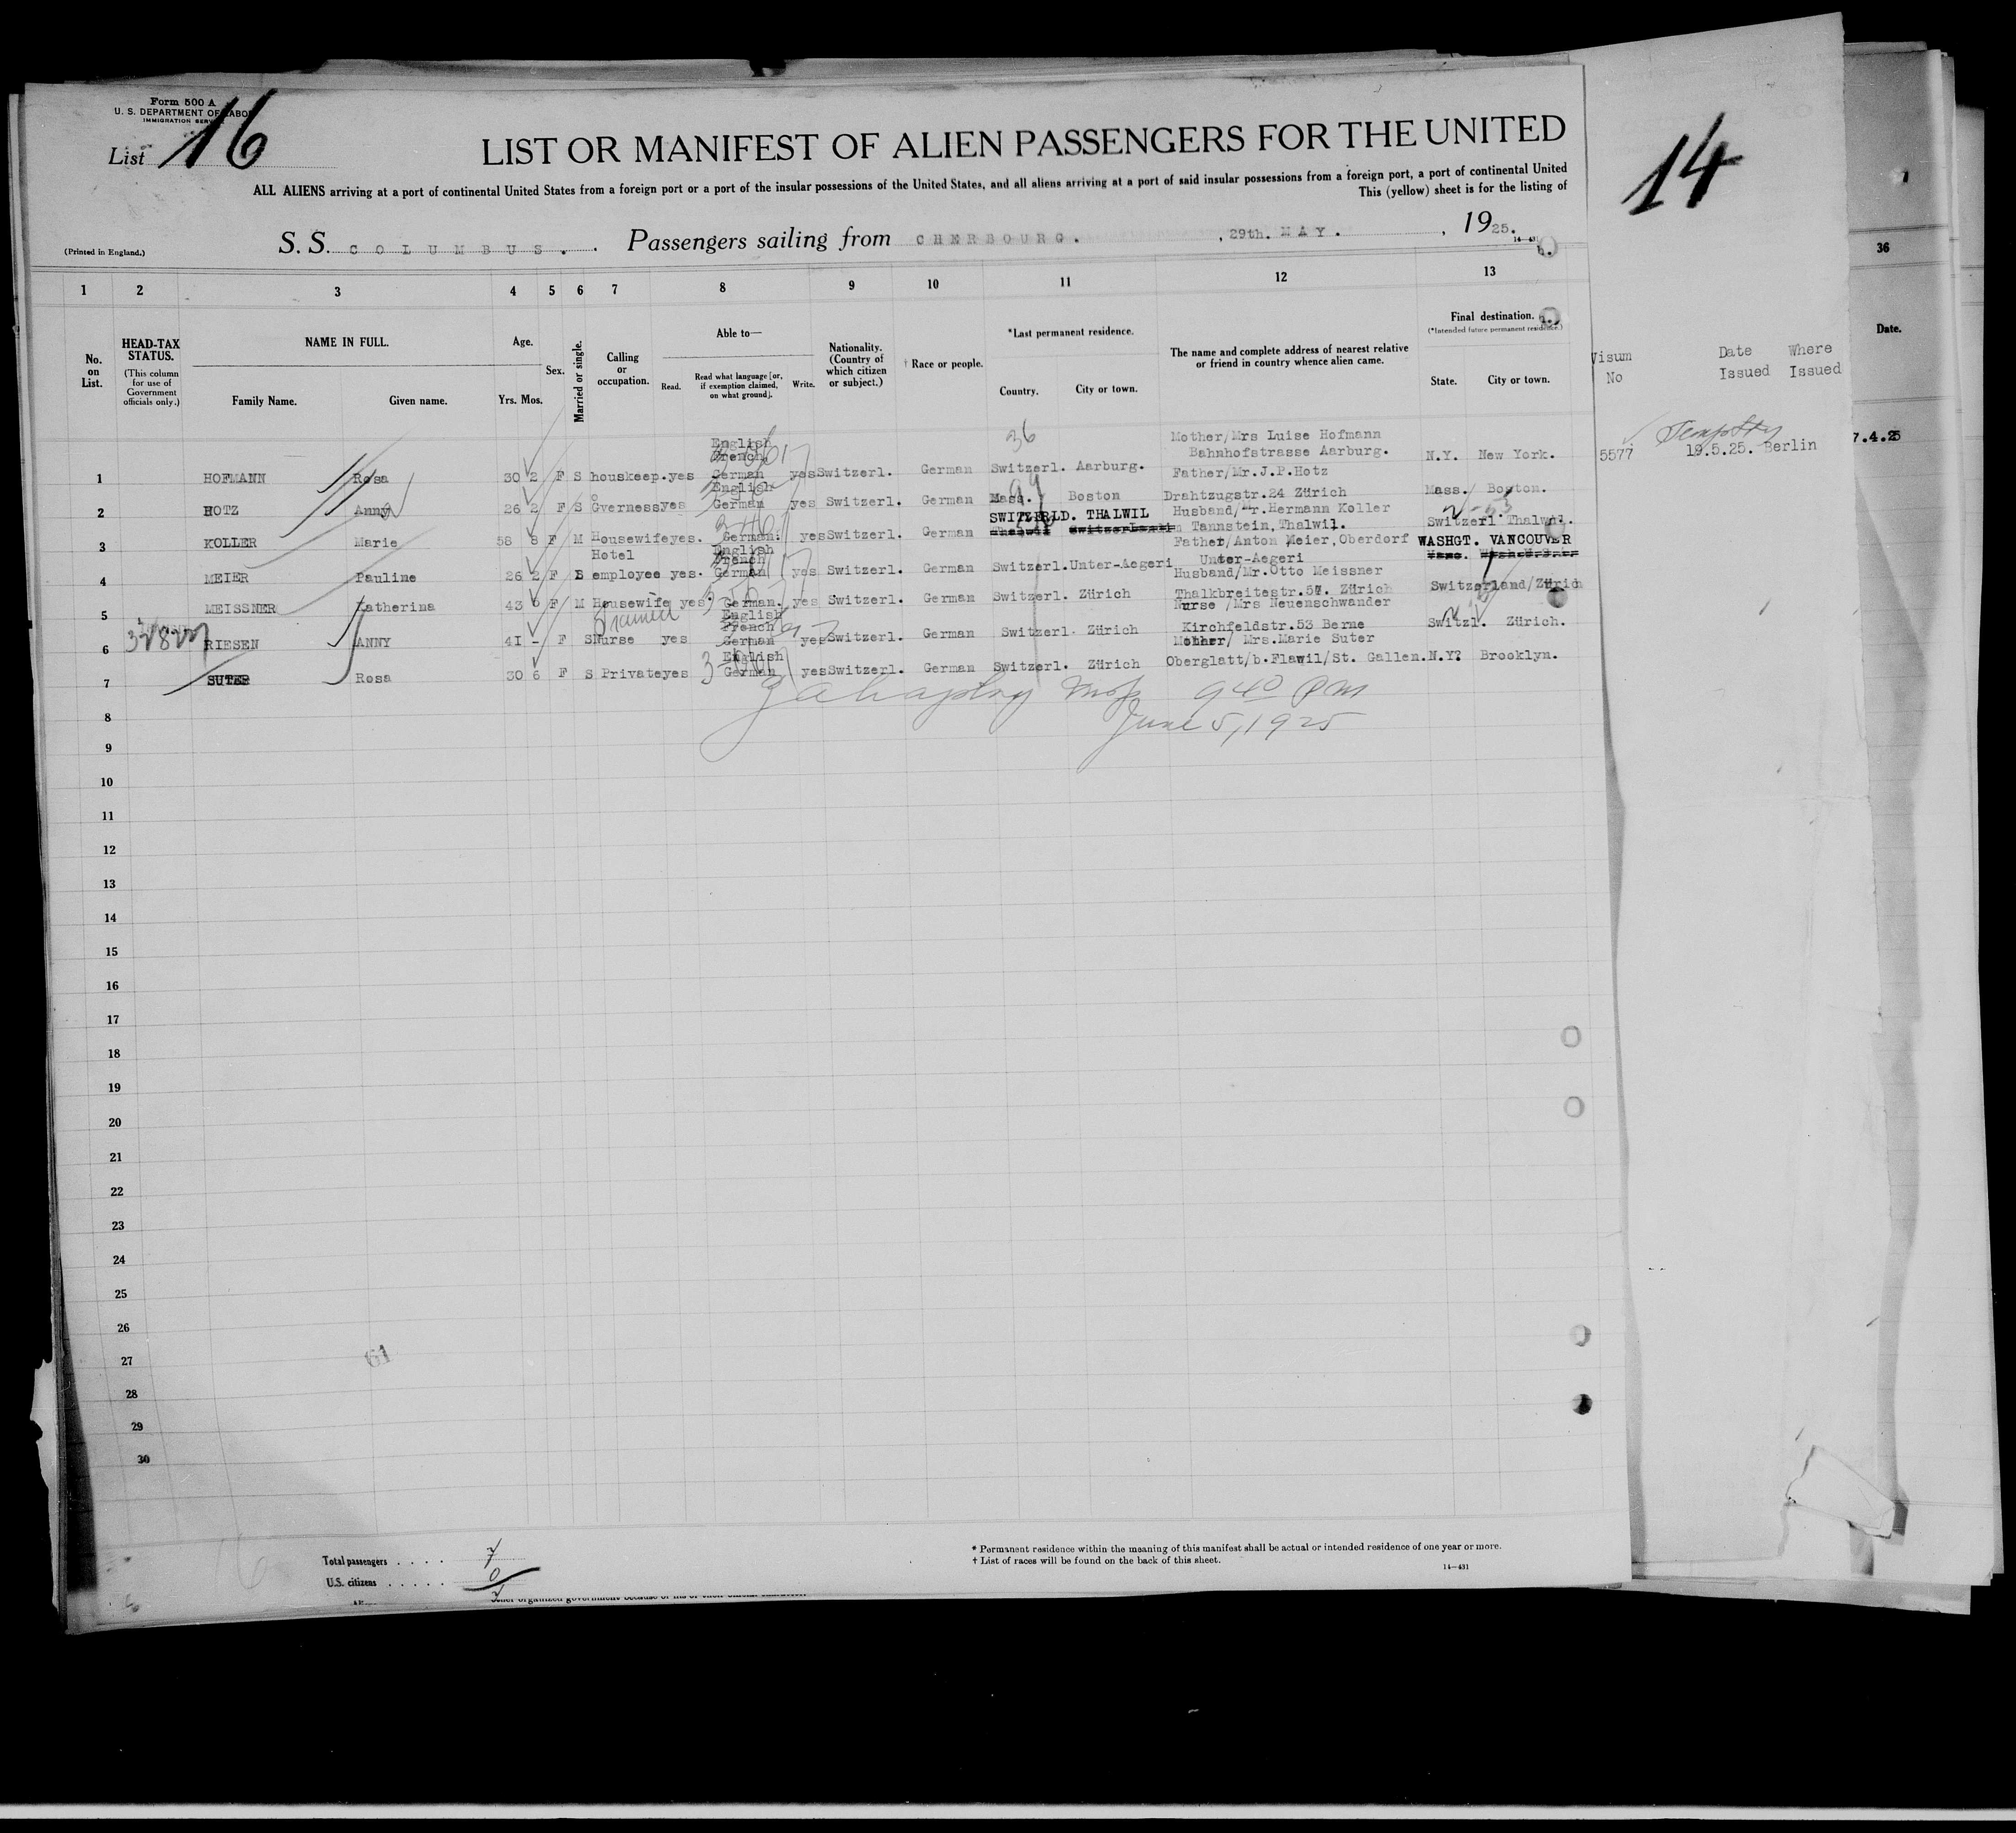 Form 500 A
U. S. DEPARTMENT OF LABO
IMMIGRATION SERV
List 16
LIST OR MANIFEST OF ALIEN PASSENGERS FOR THE UNITED
ALL ALIENS arriving at a port of continental United States from a foreign port or a port of the insular possessions of the United States, and all aliens arriving at a port of said insular possessions from a foreign port, a port of continental United
This (yellow) sheet is for the listing of
(Printed in England.)
S. S. COLUMBUS. Passengers sailing from CHERBOURG. , 29th. MAY. , 1925.
14
1 2 3 4 5 6 7 8 9 10 11 12 13
36
No. on List.
HEAD-TAX STATUS. (This column for use of Government officials only.)
NAME IN FULL.
Family Name. Given name.
Age.
Yrs. Mos.
Sex.
Married or single.
Calling or occupation.
Able to—
Read. Read what language [or, if exemption claimed, on what ground]. Write.
Nationality. (Country of which citizen or subject.)
† Race or people.
*Last permanent residence.
Country. City or town.
The name and complete address of nearest relative or friend in country whence alien came.
Final destination.
(*Intended future permanent residence.)
State. City or town.
Visum No Date Issued Where Issued
Date.
36
English
French
Mother/Mrs Luise Hofmann
Bahnhofstrasse Aarburg.
1 HOFMANN Rosa 30 2 F S houskeep. yes German yes Switzerl. German Switzerl. Aarburg. N.Y. New York.
5577 19.5.25. Berlin
7.4.25
English
Father/Mr.J.P.Hotz
2 HOTZ Anny 26 2 F S Gverness yes German yes Switzerl. German Mass. Boston Drahtzugstr.24 Zürich Mass. Boston.
SWITZERLD. THALWIL
Husband/Mr.Hermann Koller
3 KOLLER Marie 58 8 F M Housewife yes. German. yes Switzerl. German Thalwil Switzerland Tannstein,Thalwil. Switzerl.Thalwil.
Hotel
English
French
Father/Anton Meier,Oberdorf WASHGT. VANCOUVER
4 MEIER Pauline 26 2 F S employee yes. German yes Switzerl. German Switzerl.Unter-Aegeri Unter-Aegeri
Husband/Mr.Otto Meissner
5 MEISSNER Katherina 43 6 F M Housewife yes. German. yes Switzerl. German Switzerl. Zürich Thalkbreitestr.57. Zürich Switzerland/Zürich
Trained
English
French
Nurse /Mrs Neuenschwander
6 RIESEN ANNY 41 - F S Nurse yes German yes Switzerl. German Switzerl. Zürich Kirchfeldstr.53 Berne Switzl. Zürich.
English
Mother/ Mrs.Marie Suter
7 SUTER Rosa 30 6 F S Private yes German yes Switzerl. German Switzerl. Zürich Oberglatt/b.Flawil/St. Gallen. N.Y? Brooklyn.
9 40 PM
June 5, 1925
8
9
10
11
12
13
14
15
16
17
18
19
20
21
22
23
24
25
26
27
61
28
29
30
16
Total passengers . . . . 7
U.S. citizens . . . . . 0
* Permanent residence within the meaning of this manifest shall be actual or intended residence of one year or more.
† List of races will be found on the back of this sheet.
14—431